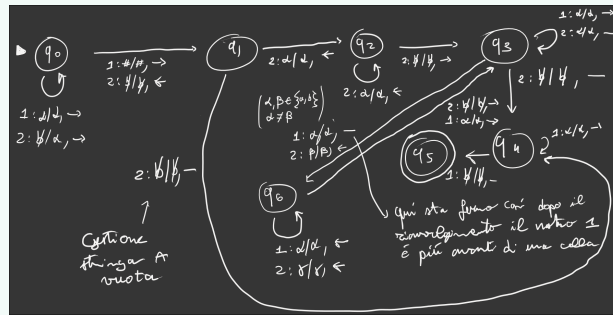 q0
1: α/α, →
2: b̸/α, →
1: #/#, →
2: b̸/b̸, ←
q1
2: α/α, ←
q2
2: α/α, ←
2: b̸/b̸, →
q3
1: α/α, →
2: α/α, →
2: b̸/b̸, —
q4
1: α/α, →
1: b̸/b̸, —
q5
2: b̸/b̸, →
1: α/α, →
(α, β ∈ {a, b}
α ≠ β)
1: α/α, —
2: β/β, ←
q6
1: α/α, ←
2: γ/γ, ←
2: b̸/b̸, —
Gestione
stringa A
vuota
qui sta fermo così dopo il
riavvolgimento il nastro 1
è più avanti di una cella